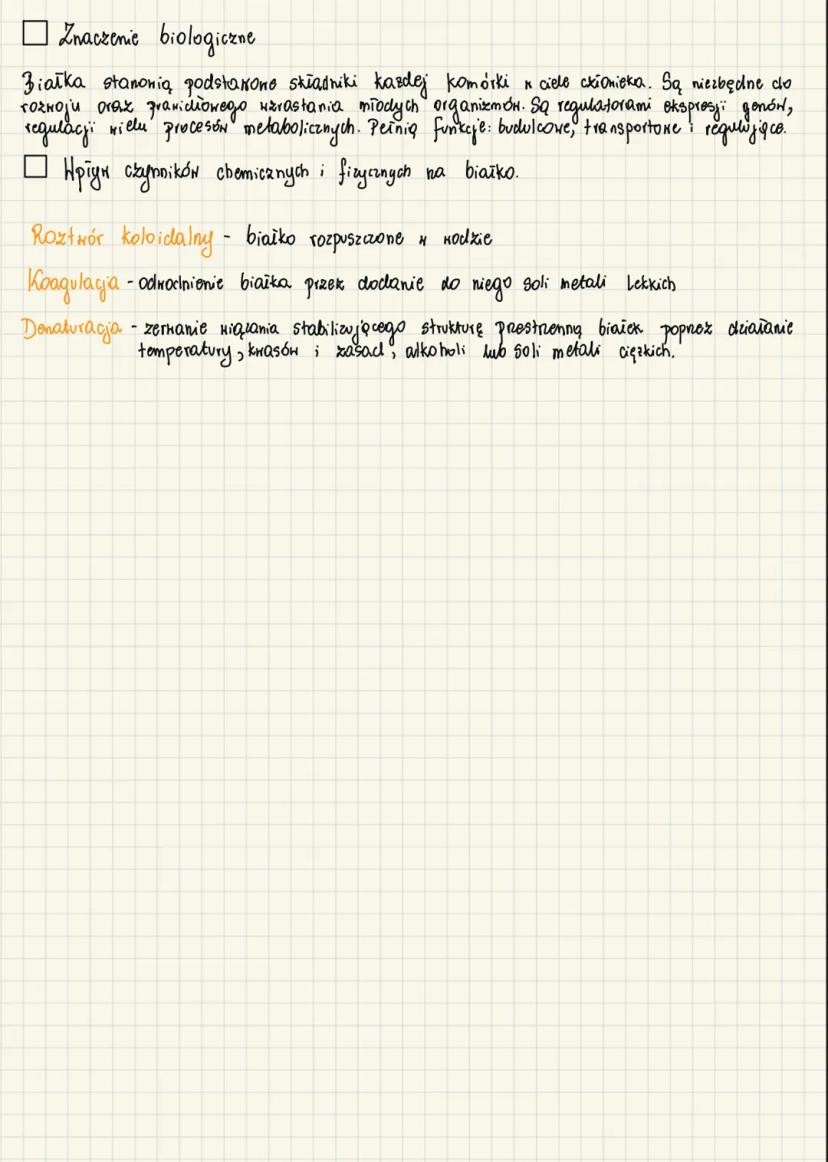 Znaczenie biologiczne
Białka stanowią podstawowe składniki każdej komórki w ciele człowieka. Są niezbędne do
rozwoju oraz prawidłowego wzrastania młodych organizmów. Są regulatorami ekspresji genów,
regulacji wielu procesów metabolicznych. Pełnią funkcje: budulcowe, transportowe i regulujące.
Wpływ czynników chemicznych i fizycznych na białko.
Roztwór koloidalny - białko rozpuszczone w wodzie
Koagulacja - odwodnienie białka przez dodanie do niego soli metali lekkich
Denaturacja - zerwanie wiązania stabilizującego strukturę przestrzenną białek poprzez działanie
temperatury, kwasów i zasad, alkoholi lub soli metali ciężkich.